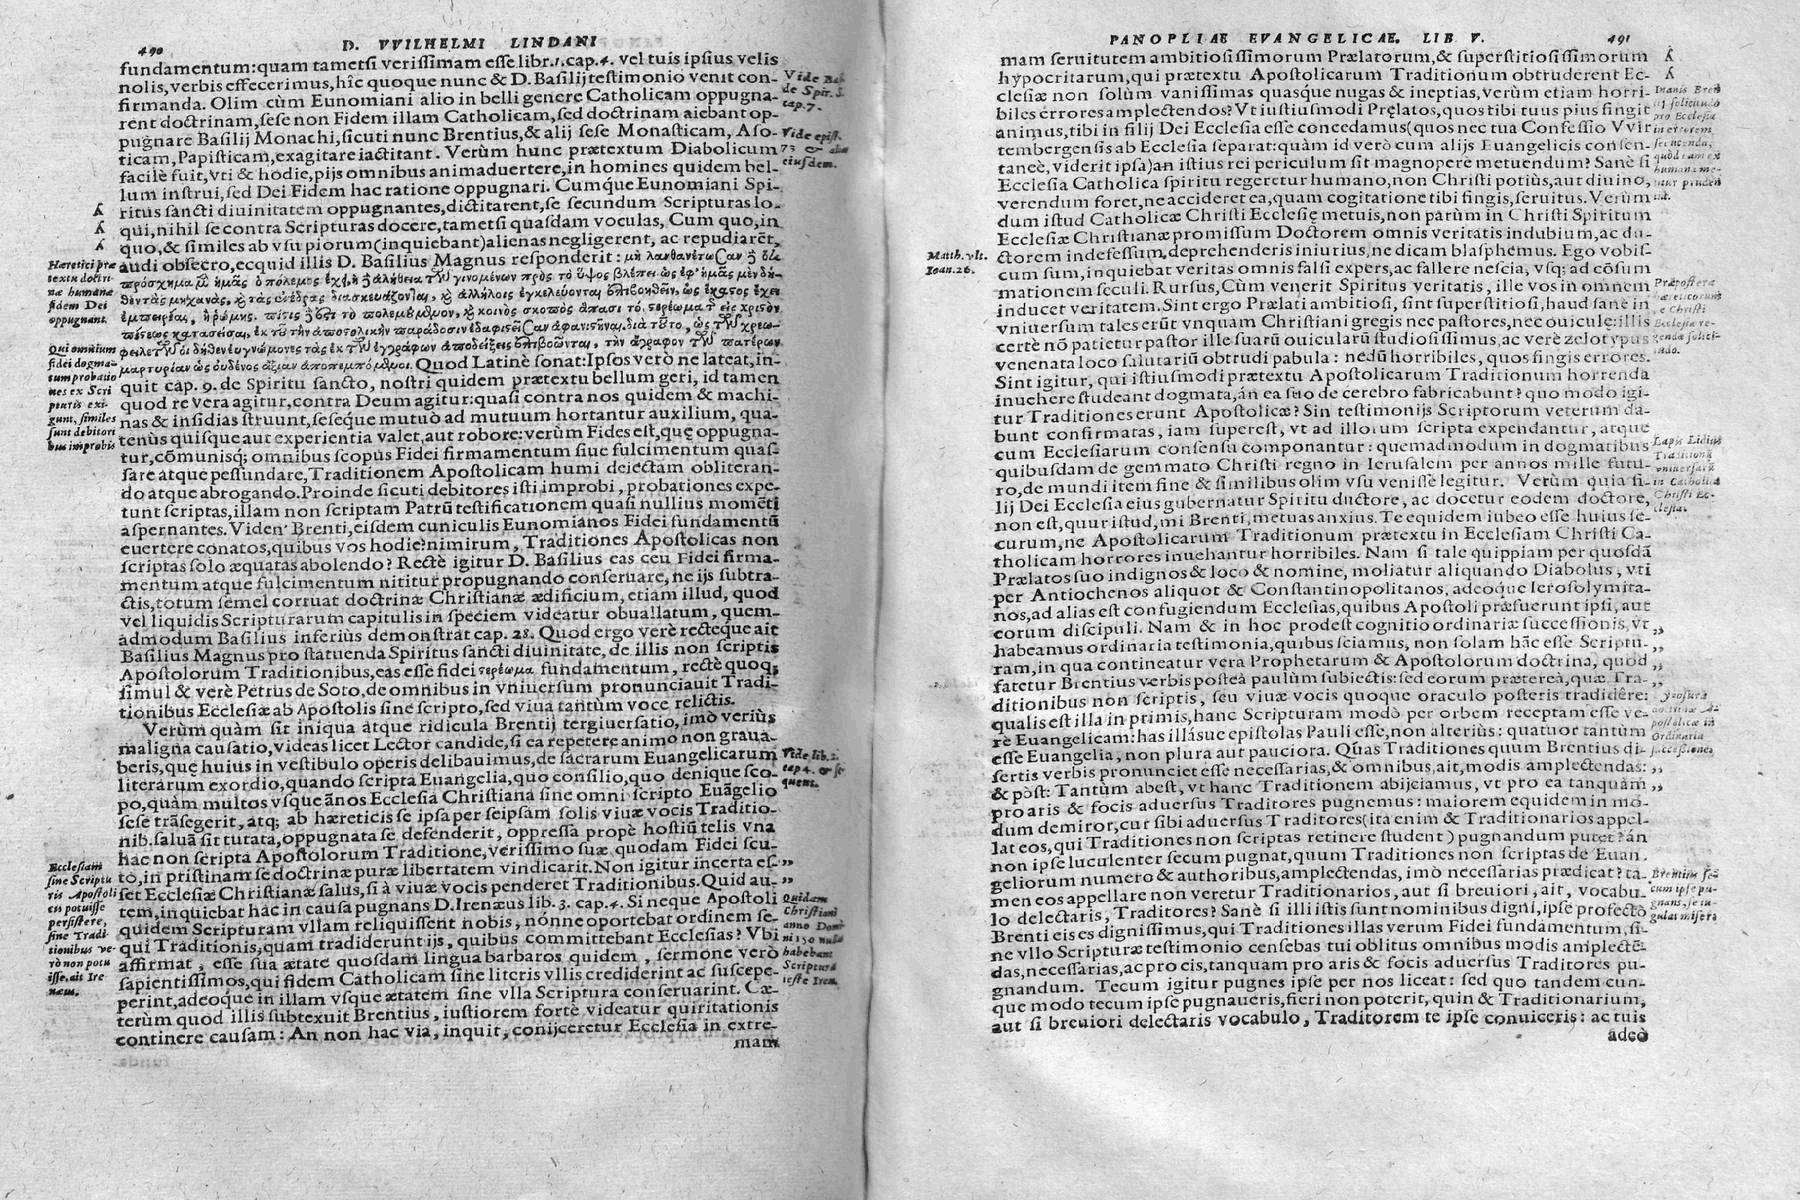 490
D. VVILHELMI LINDANI
fundamentum: quam tametsi verissimam esse libr.1.cap.4. vel tuis ipsius velis
nolis, verbis effecerimus, hîc quoque nunc & D. Basilij testimonio venit con-
firmanda. Olim cùm Eunomiani alio in belli genere Catholicam oppugna-
rent doctrinam, sese non Fidem illam Catholicam, sed doctrinam aiebant op-
pugnare Basilij Monachi, sicuti nunc Brentius, & alij sese Monasticam, Aso-
ticam, Papisticam, exagitare iactitant. Verùm hunc prætextum Diabolicum
facilè fuit, vti & hodie, pijs omnibus animaduertere, in homines quidem bel-
lum instrui, sed Dei Fidem hac ratione oppugnari. Cumque Eunomiani Spi-
ritus sancti diuinitatem oppugnantes, dictitarent, se secundum Scripturas lo-
qui, nihil se contra Scripturas docere, tametsi quasdam voculas, Cum quo, in
quo, & similes ab vsu piorum (inquiebant) alienas negligerent, ac repudiarēt,
audi obsecro, ecquid illis D. Basilius Magnus responderit: μὴ λανθανέτωσαν
πρόσχημα ὁ πόλεμος ἀλήθεια γινομένων πρὸς τὸ ὕψος βλέπει
ἐμπειρίας, ἢ ῥώμης. πίστις
μαρτυρίαν ὡς οὐδενὸς ἀξίαν ἀποπεμπόμενοι. Quod Latinè sonat: Ipsos verò ne lateat, in-
quit cap. 9. de Spiritu sancto, nostri quidem prætextu bellum geri, id tamen
quod re vera agitur, contra Deum agitur: quasi contra nos quidem & machi-
nas & insidias struunt, seseque mutuò ad mutuum hortantur auxilium, qua-
tenùs quisque aut experientia valet, aut robore: verùm Fides est, quę oppugna-
tur, cōmunisq; omnibus scopus Fidei firmamentum siue fulcimentum quas-
sare atque pessundare, Traditionem Apostolicam humi deiectam obliteran-
do atque abrogando. Proinde sicuti debitores isti improbi, probationes expe-
tunt scriptas, illam non scriptam Patrū testificationem quasi nullius momēti
aspernantes. Viden' Brenti, eisdem cuniculis Eunomianos Fidei fundamentū
euertere conatos, quibus vos hodie? nimirum, Traditiones Apostolicas non
scriptas solo æquatas abolendo? Rectè igitur D. Basilius eas ceu Fidei firma-
mentum atque fulcimentum nititur propugnando conseruare, ne ijs subtra-
ctis, totum semel corruat doctrinæ Christianæ ædificium, etiam illud, quod
vel liquidis Scripturarum capitulis in speciem videatur obuallatum, quem-
admodum Basilius inferiùs demonstrat cap. 28. Quod ergo verè recteque ait
Basilius Magnus pro statuenda Spiritus sancti diuinitate, de illis non scriptis
Apostolorum Traditionibus, eas esse fidei στερέωμα fundamentum, rectè quoq;
simul & verè Petrus de Soto, de omnibus in vniuersum pronunciauit Tradi-
tionibus Ecclesiæ ab Apostolis sine scripto, sed viua tantùm voce relictis.
Verùm quàm sit iniqua atque ridicula Brentij tergiuersatio, imò veriùs
maligna causatio, videas licet Lector candide, si ea repetere animo non graua-
beris, quę huius in vestibulo operis delibauimus, de sacrarum Euangelicarum
literarum exordio, quando scripta Euangelia, quo consilio, quo denique sco-
po, quàm multos vsque ānos Ecclesia Christiana sine omni scripto Euāgelio
sese trāsegerit, atq; ab hæreticis se ipsa per seipsam solis viuæ vocis Traditio-
nib. saluā sit tutata, oppugnata se defenderit, oppressa propè hostiū telis vna
hac non scripta Apostolorum Traditione, verissimo suæ quodam Fidei scu-
to, in pristinam se doctrinæ puræ libertatem vindicarit. Non igitur incerta es- „
set Ecclesiæ Christianæ salus, si à viuæ vocis penderet Traditionibus. Quid au- „
tem, inquiebat hac in causa pugnans D. Irenæus lib. 3. cap. 4. Si neque Apostoli
quidem Scripturam vllam reliquissent nobis, nónne oportebat ordinem se-
qui Traditionis, quam tradiderunt ijs, quibus committebant Ecclesias? Vbi
affirmat, esse sua ætate quosdam lingua barbaros quidem, sermone verò
sapientissimos, qui fidem Catholicam sine literis vllis crediderint ac suscepe-
perint, adeoque in illam vsque ætatem sine vlla Scriptura conseruarint. Cæ-
terùm quod illis subtexuit Brentius, iustiorem fortè videatur quiritationis
continere causam: An non hac via, inquit, conijceretur Ecclesia in extre-
mam
Hæretici præ
textu doctri-
næ humanæ
fidem Dei
oppugnant.
Qui omnium
fidei dogma-
tum probatio
nes ex Scri
pturis exi-
gunt, similes
sunt debitori
bus improbis
Ecclesiam
sine Scriptu
ris Apostoli
cis potuisse
persistere,
sine Tradi-
tionibus ve-
rò non potu
isse, ait Ire
næus.
Vide Bas.
de Spir. S.
cap. 7.
Vide epist.
73 & alias
eiusdem.
Vide lib. 2.
cap 4. & se
quent.
Quidam
Christiani
anno Domi
ni 150 nullā
habebant
Scripturā
teste Iren.
PANOPLIAE EVANGELICAE. LIB V.
491
mam seruitutem ambitiosissimorum Prælatorum, & superstitiosissimorum
hypocritarum, qui prætextu Apostolicarum Traditionum obtruderent Ec-
clesiæ non solùm vanissimas quasque nugas & ineptias, verùm etiam horri-
biles errores amplectendos? Vt iustiusmodi Pręlatos, quos tibi tuus pius fingit
animus, tibi in filij Dei Ecclesia esse concedamus (quos nec tua Confessio Vvir
tembergensis ab Ecclesia separat: quàm id verò cum alijs Euangelicis consen-
taneè, viderit ipsa) an istius rei periculum sit magnopere metuendum? Sanè si
Ecclesia Catholica spiritu regeretur humano, non Christi potiùs, aut diuino,
verendum foret, ne accideret ea, quam cogitatione tibi fingis, seruitus. Verùm
dum istud Catholicæ Christi Ecclesię metuis, non parùm in Christi Spiritum
Ecclesiæ Christianæ promissum Doctorem omnis veritatis indubium, ac du-
ctorem indefessum, deprehenderis iniurius, ne dicam blasphemus. Ego vobis-
cum sum, inquiebat veritas omnis falsi expers, ac fallere nescia, vsq; ad cōsum
mationem seculi. Rursus, Cùm venerit Spiritus veritatis, ille vos in omnem
inducet veritatem. Sint ergo Prælati ambitiosi, sint superstitiosi, haud sanè in
vniuersum tales erūt vnquam Christiani gregis nec pastores, nec ouiculę: illis
certè nō patietur pastor ille suarū ouicularū studiosissimus, ac verè zelotypus
venenata loco salutariū obtrudi pabula: nedū horribiles, quos fingis errores.
Sint igitur, qui istiusmodi prætextu Apostolicarum Traditionum horrenda
inuehere studeant dogmata, án ea suo de cerebro fabricabunt? quo modo igi-
tur Traditiones erunt Apostolicæ? Sin testimonijs Scriptorum veterum da-
bunt confirmatas, iam superest, vt ad illorum scripta expendantur, atque
cum Ecclesiarum consensu componantur: quemadmodum in dogmatibus
quibusdam de gemmato Christi regno in Ierusalem per annos mille futu-
ro, de mundi item fine & similibus olim vsu venisse legitur. Verùm quia fi-
lij Dei Ecclesia eius gubernatur Spiritu ductore, ac docetur eodem doctore,
non est, quur istud, mi Brenti, metuas anxius. Te equidem iubeo esse huius se-
curum, ne Apostolicarum Traditionum prætextu in Ecclesiam Christi Ca-
tholicam horrores inuehantur horribiles. Nam si tale quippiam per quosdā
Prælatos suo indignos & loco & nomine, moliatur aliquando Diabolus, vti
per Antiochenos aliquot & Constantinopolitanos, adeoque Ierosolymita-
nos, ad alias est confugiendum Ecclesias, quibus Apostoli præfuerunt ipsi, aut
eorum discipuli. Nam & in hoc prodest cognitio ordinariæ successionis, vt „
habeamus ordinaria testimonia, quibus sciamus, non solam hāc esse Scriptū- „
ram, in qua contineatur vera Prophetarum & Apostolorum doctrina, quod „
fatetur Brentius verbis posteà paulùm subiectis: sed eorum prætereà, quæ Tra- „
ditionibus non scriptis, seu viuæ vocis quoque oraculo posteris tradidêre: „
qualis est illa in primis, hanc Scripturam modò per orbem receptam esse ve-
rè Euangelicam: has illásue epistolas Pauli esse, non alterius: quatuor tantùm
esse Euangelia, non plura aut pauciora. Quas Traditiones quum Brentius di-
sertis verbis pronunciet esse necessarias, & omnibus, ait, modis amplectendas: „
& pòst: Tantùm abest, vt hanc Traditionem abijciamus, vt pro ea tanquàm „
pro aris & focis aduersus Traditores pugnemus: maiorem equidem in mo-
dum demiror, cur sibi aduersus Traditores (ita enim & Traditionarios appel-
lat eos, qui Traditiones non scriptas retinere student) pugnandum putet? án
non ipse luculenter secum pugnat, quum Traditiones non scriptas de Euan-
geliorum numero & authoribus, amplectendas, imò necessarias prædicat? ta-
men eos appellare non veretur Traditionarios, aut si breuiori, ait, vocabu-
lo delectaris, Traditores? Sanè si illi istis sunt nominibus digni, ipse profectò
Brenti eis es dignissimus, qui Traditiones illas verum Fidei fundamentum, si-
ne vllo Scripturæ testimonio censebas tui oblitus omnibus modis amplectē-
das, necessarias, ac pro eis, tanquam pro aris & focis aduersus Traditores pu-
gnandum. Tecum igitur pugnes ipse per nos liceat: sed quo tandem cun-
que modo tecum ipse pugnaueris, fieri non poterit, quin & Traditionarium,
aut si breuiori delectaris vocabulo, Traditorem te ipse conuiceris: ac tuis
adeò
Matth. vlt.
Ioan. 26.
Inanis Bren
tij solicitudo
pro Ecclesia
in errorem
humana me-
Lapis Lidius
Traditionū
vniuersarū
in Catholica
Christi Ec-
clesia.
ordinaria
successiones
Brentius se-
cum ipse pu-
gnans, se iu-
gulat misere